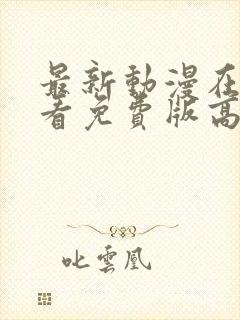 最新動漫在
看免費版高
叱雲凰